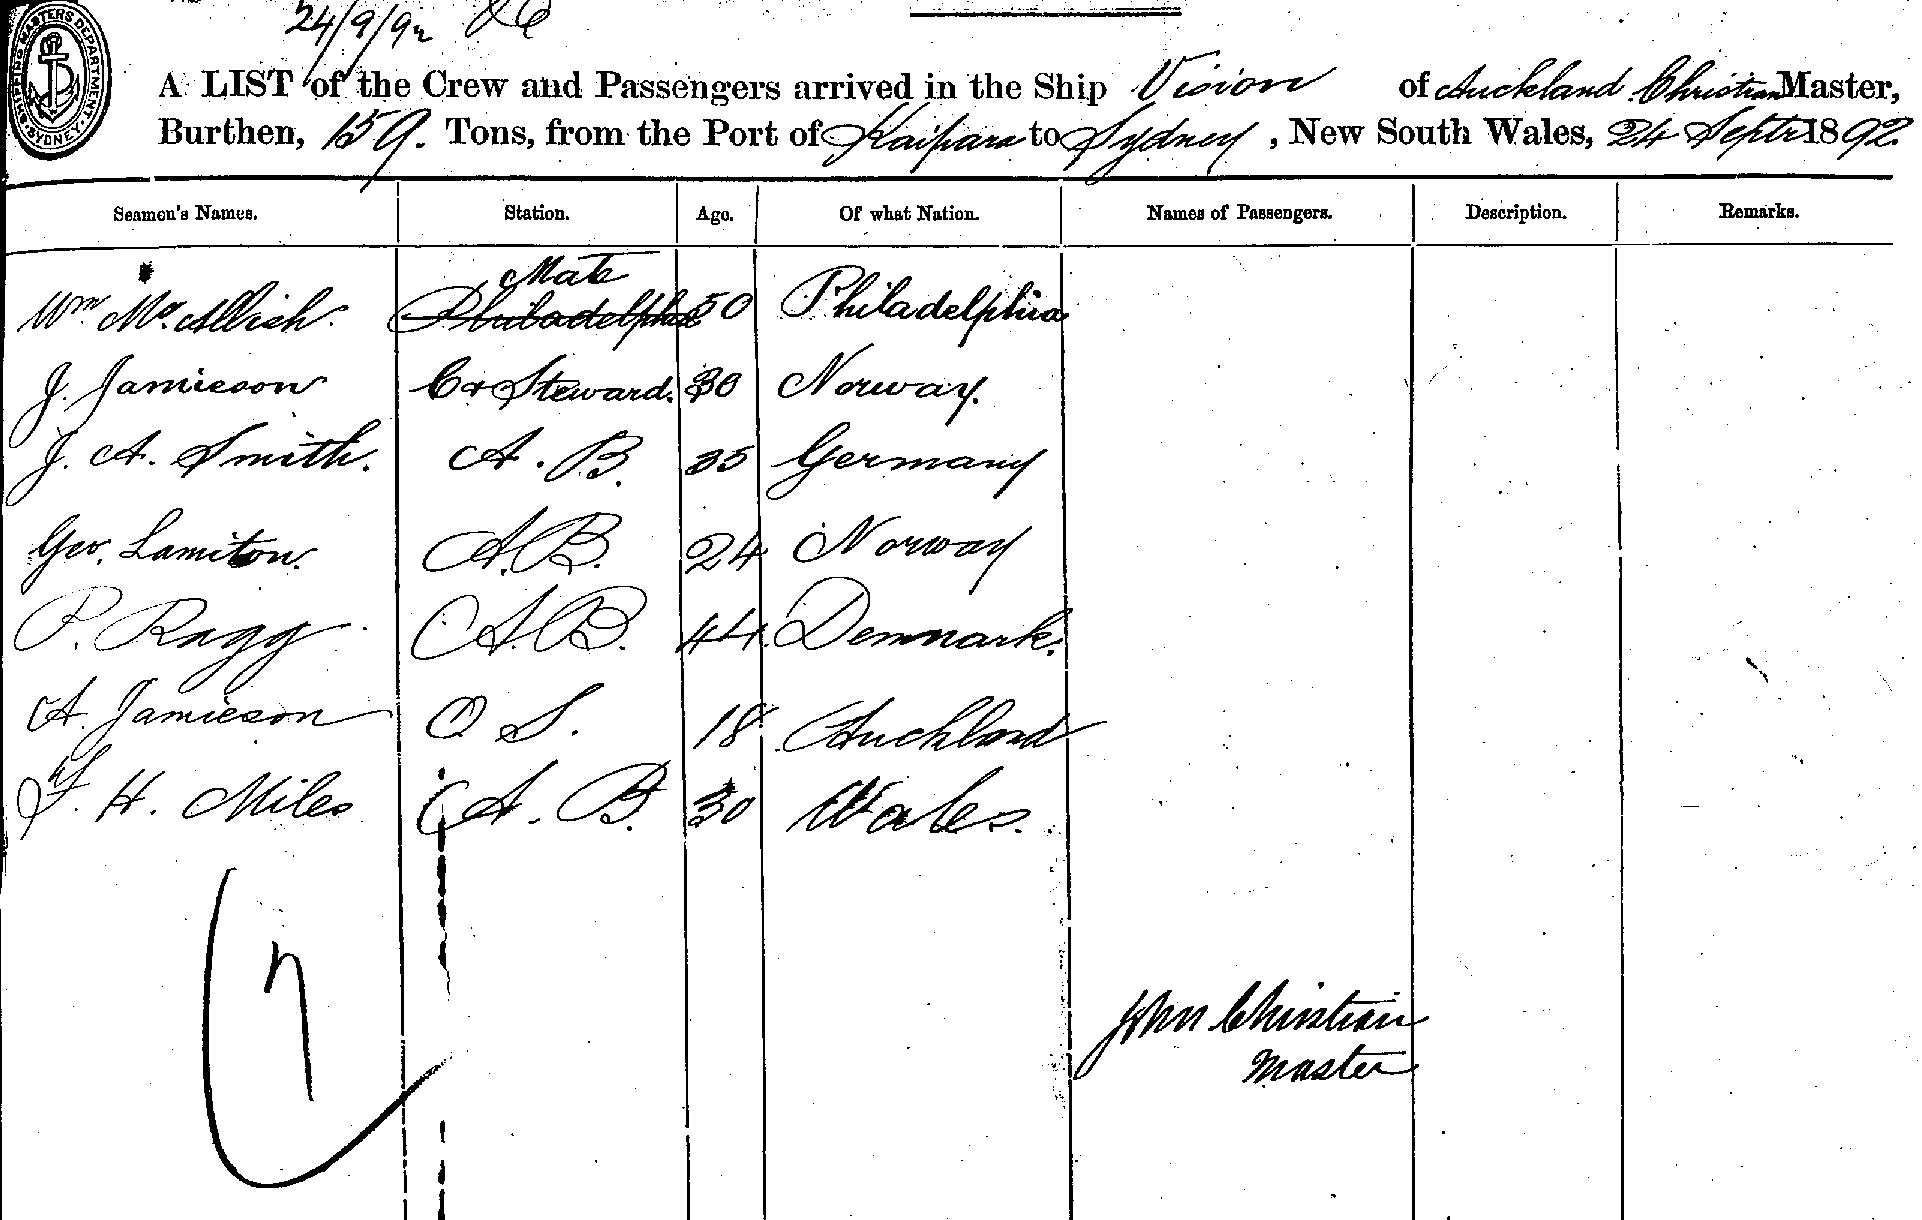 SHIPPING MASTERS DEPARTMENT SYDNEY
24/9/92
A LIST of the Crew and Passengers arrived in the Ship Vision of Auckland Christian Master,
Burthen, 159. Tons, from the Port of Kaipara to Sydney, New South Wales, 24 Septr 1892.
Seamen's Names. Station. Age. Of what Nation. Names of Passengers. Description. Remarks.
Mate
Wm. Philadelphia 50 Philadelphia
J. Jamieson C & Steward. 30 Norway.
J. A. Smith. A. B. 35 Germany
Geo. Lamiton. A.B. 24 Norway
P. Ragg A.B. 44. Denmark.
A. Jamieson O S. 18 Auckland
F. H. Miles A. B. 30 Wales.
7
John Christian
Master